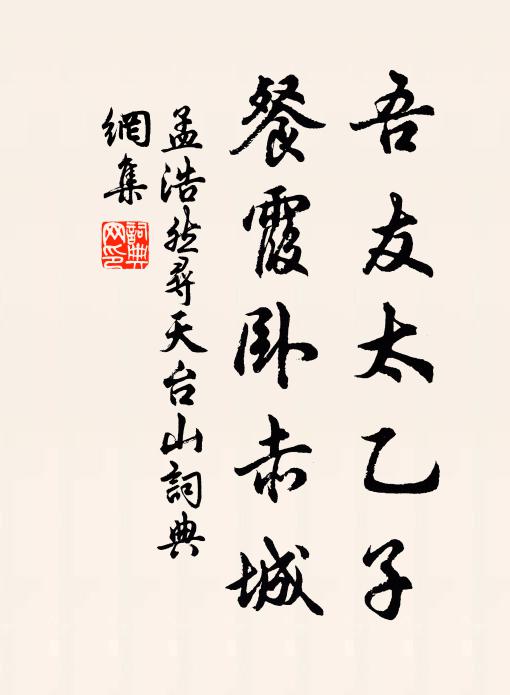 吾友太乙子
餐霞卧赤城
孟浩然尋天台山詞典
網集
詞典
网印